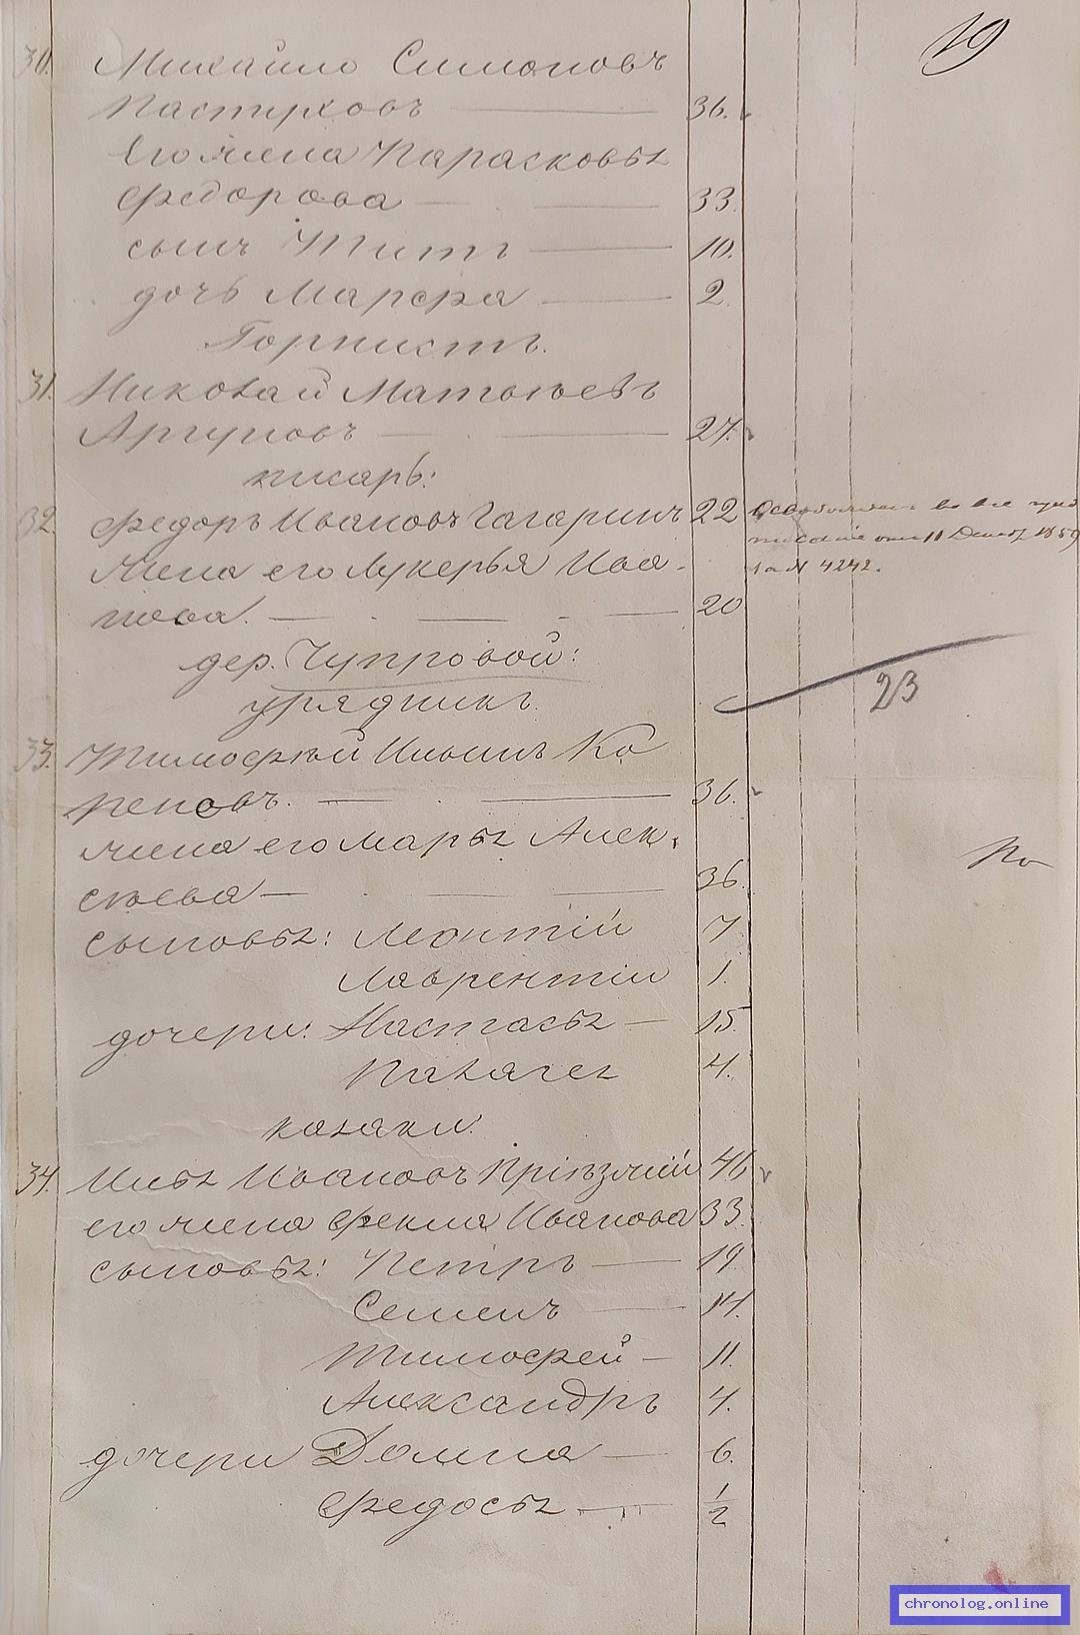 19
30. Михайло Симоновъ
Пастуховъ 36.
Его жена Парасковья
Федорова 33.
сынъ Титъ 10.
дочь Марфа 2.
Горнистъ.
31. Николай Матвѣевъ
Аргуновъ 27.
писарь:
32. Федоръ Ивановъ Гагаринъ 22
жена его Лукерья Ива-
нова. 20
отъ 11 Декабр 1859
за № 4242.
дер. Чупровой:
урядникъ.
23
33. Тимофѣй Ильинъ Ко
реновъ. 36.
жена его Марья Алек-
сѣева 36.
По
сыновья: Леонтій 7
Лаврентій 1.
дочери: Настасья 15.
Палагея 4.
казаки:
34. Илья Ивановъ Пріезжій 46
его жена Фекла Иванова 33.
сыновья: Петръ 19.
Семенъ 14.
Тимофей 11.
Александръ 4.
дочери Домна 6.
Федосья 1/2
chronolog.online